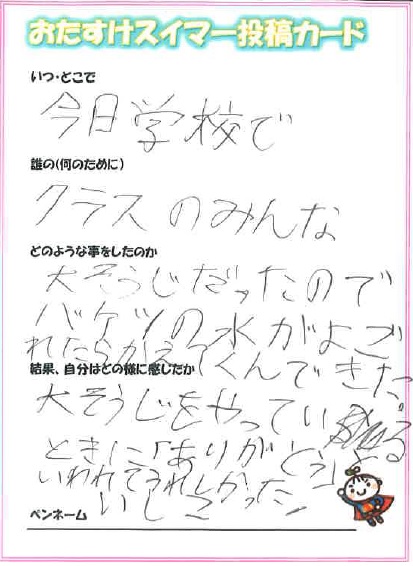 おたすけスイマー投稿カード
いつ・どこで
今日学校で
誰の(何のために)
クラスのみんな
どのような事をしたのか
大そうじだったので
バケツの水がよご
れたらかえてくんできた
結果、自分はどの様に感じたか
大そうじをやっている
ときに「ありがとう」と
いわれてうれしかった
ペンネーム